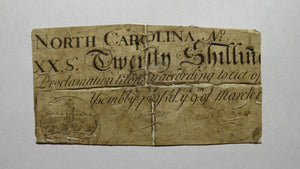 NORTH CAROLINA, No
XX.S. Twenty Shillin
Proclamation according to Act of
Assembly, pass'd ye 9 of March